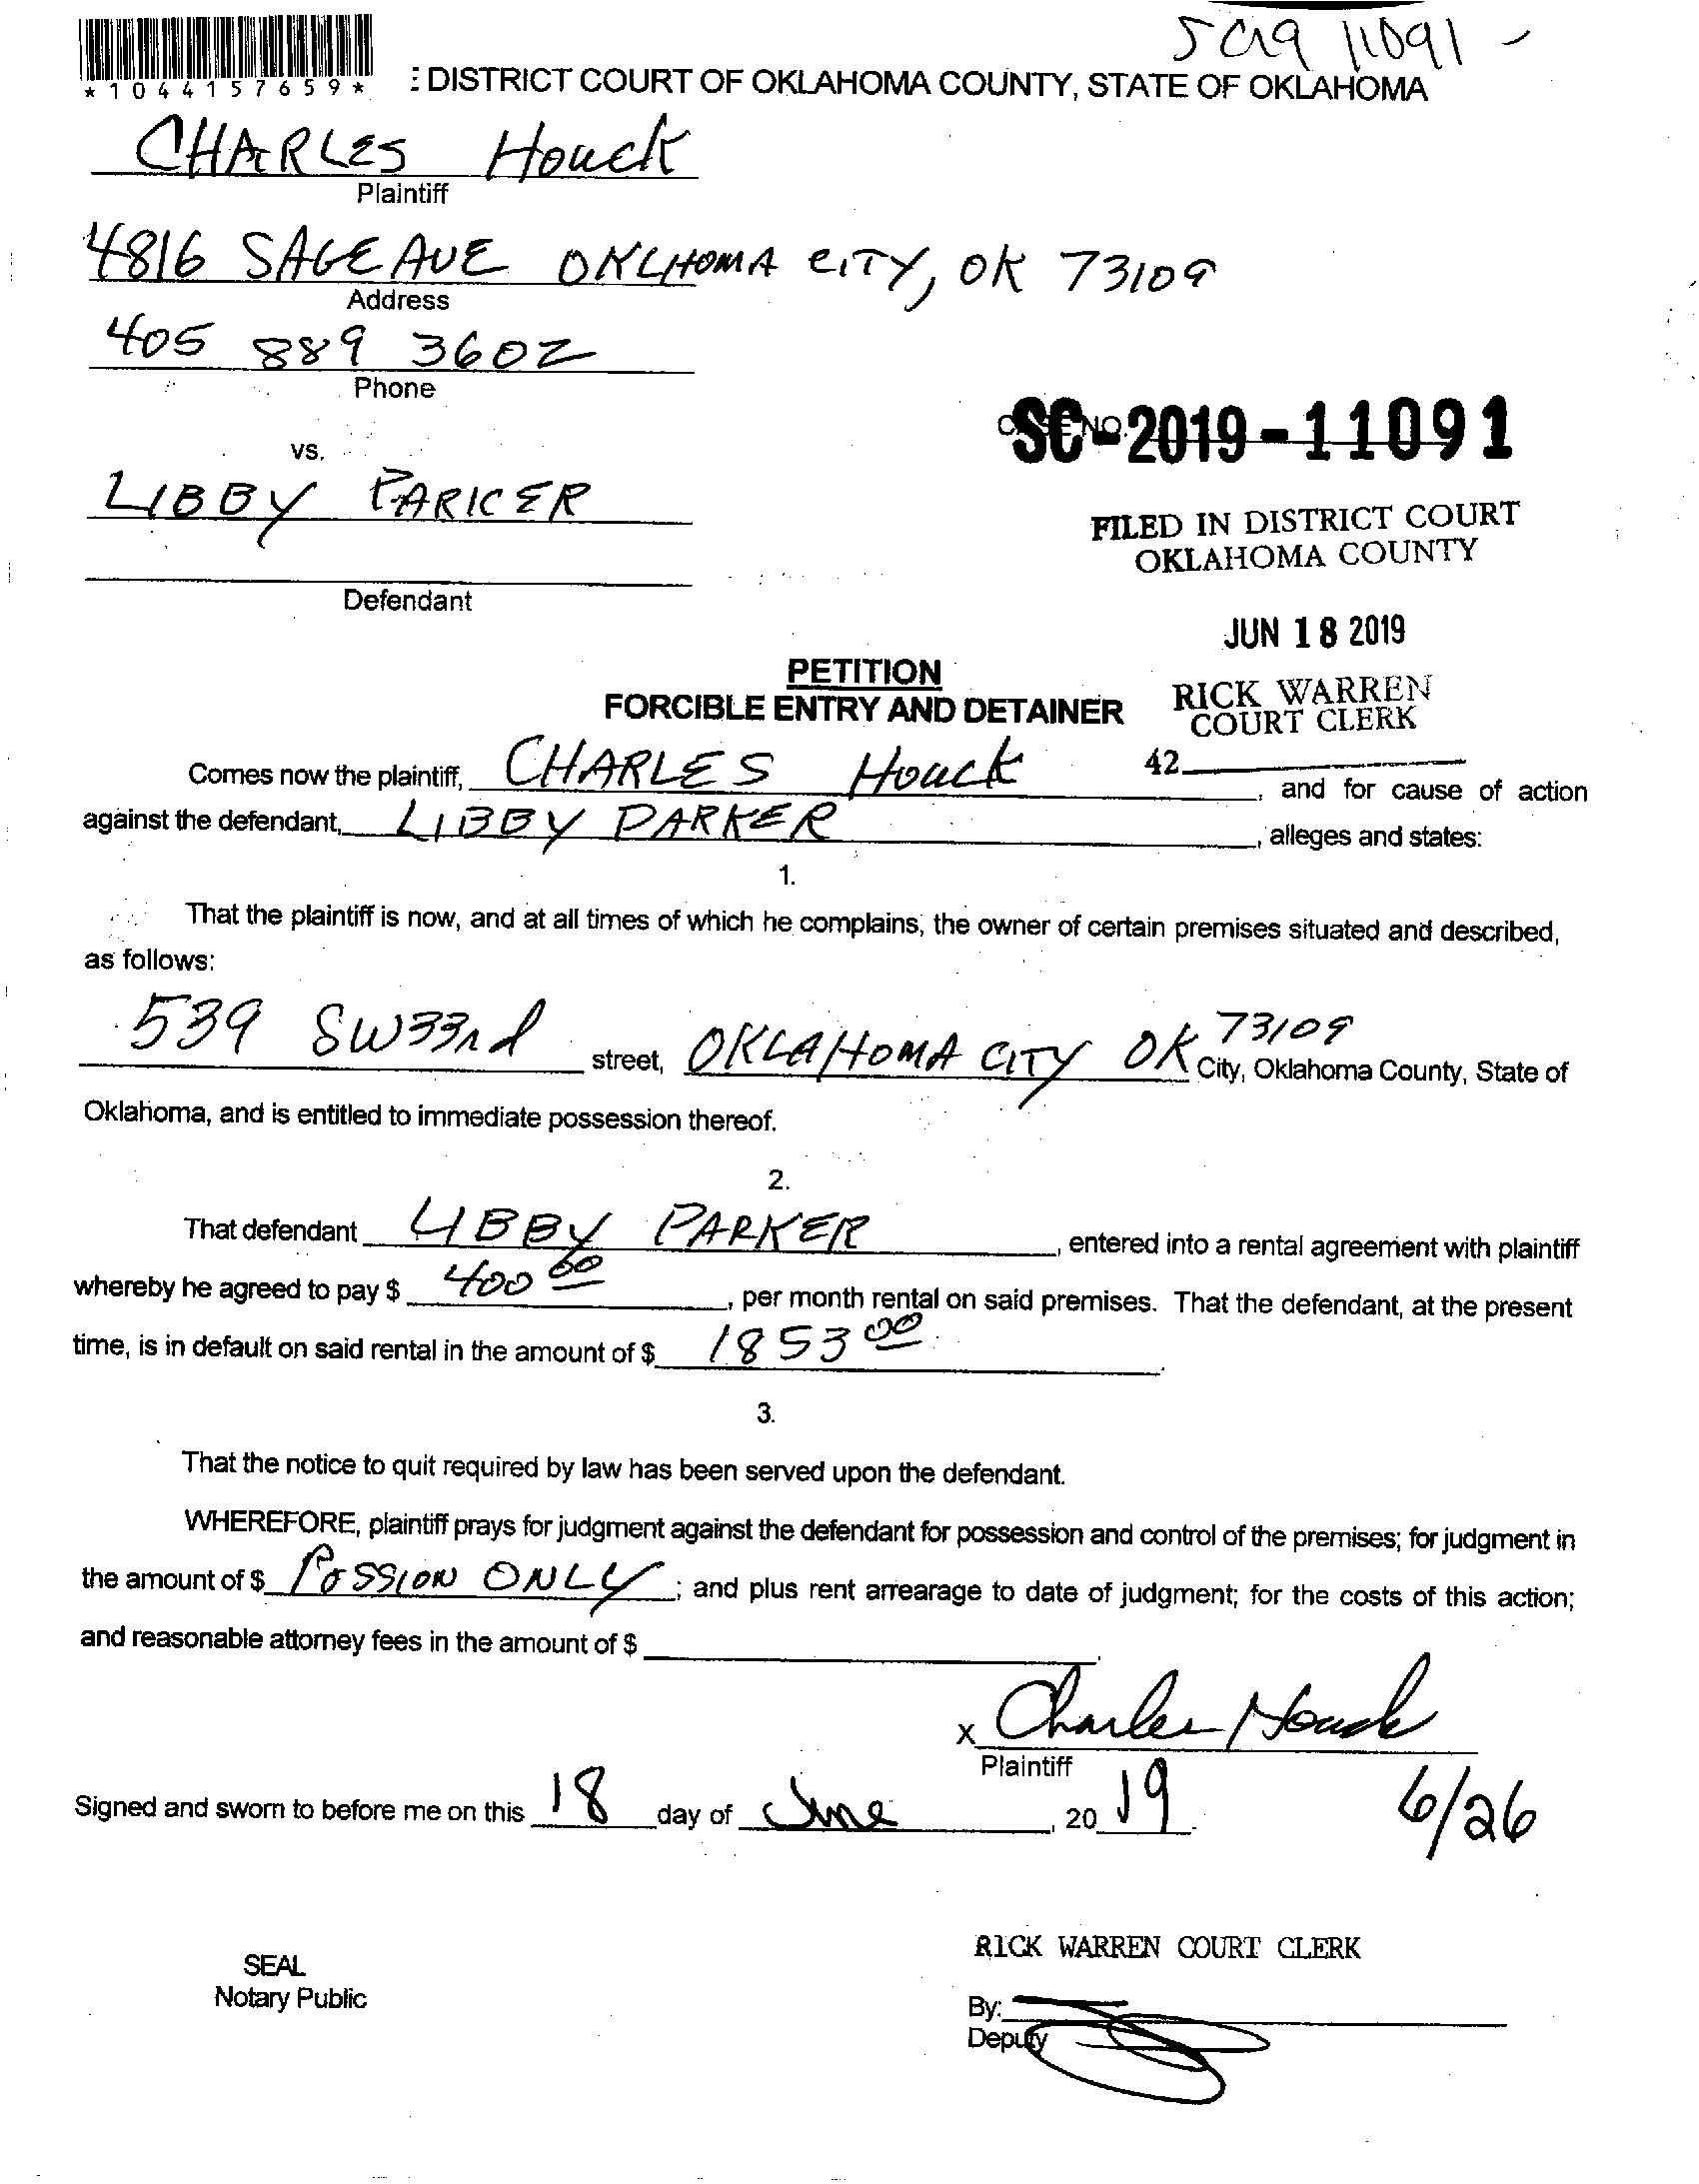 SC19 11091 -
*1044157659*
: DISTRICT COURT OF OKLAHOMA COUNTY, STATE OF OKLAHOMA
CHARLES Houck
Plaintiff
4816 SAGE AVE OKLHOMA CITY, OK 73109
Address
405 889 3602
Phone
SC-2019-11091
vs.
LIBBY PARKER
FILED IN DISTRICT COURT
OKLAHOMA COUNTY
Defendant
JUN 18 2019
PETITION
FORCIBLE ENTRY AND DETAINER
RICK WARREN
COURT CLERK
42
Comes now the plaintiff, CHARLES Houck, and for cause of action
against the defendant, LIBBY PARKER, alleges and states:
1.
That the plaintiff is now, and at all times of which he complains, the owner of certain premises situated and described,
as follows:
539 SW33rd street, OKLAHOMA CITY OK 73109 City, Oklahoma County, State of
Oklahoma, and is entitled to immediate possession thereof.
2.
That defendant LIBBY PARKER, entered into a rental agreement with plaintiff
whereby he agreed to pay $ 400 00, per month rental on said premises. That the defendant, at the present
time, is in default on said rental in the amount of $ 1853 00.
3.
That the notice to quit required by law has been served upon the defendant.
WHEREFORE, plaintiff prays for judgment against the defendant for possession and control of the premises; for judgment in
the amount of $ POSSION ONLY; and plus rent arrearage to date of judgment; for the costs of this action;
and reasonable attorney fees in the amount of $ .
x Charles Houck
Plaintiff
Signed and sworn to before me on this 18 day of June, 20 19.
6/26
RICK WARREN COURT CLERK
SEAL
Notary Public
By:
Deputy